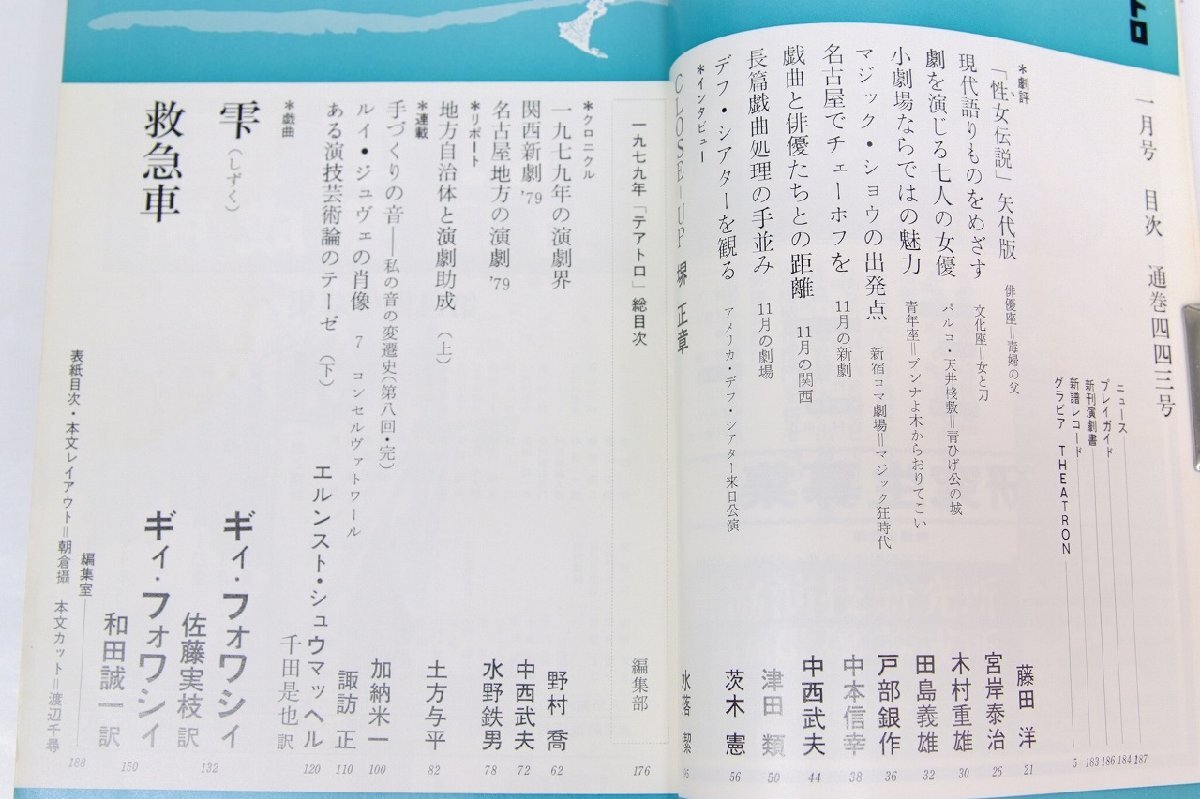 トロ
一月号 目次 通巻四四三号
ニュース 187
プレイガイド 184
新刊演劇書 186
新譜レコード 183
グラビア THEATRON 5
*劇評
「性女伝説」矢代版 俳優座＝毒婦の父 藤田 洋 21
現代語りものをめざす 文化座＝女と刀 宮岸泰治 25
劇を演じる七人の女優 パルコ・天井桟敷＝青ひげ公の城 木村重雄 30
小劇場ならではの魅力 青年座＝ブンナよ木からおりてこい 田島義雄 32
マジック・ショウの出発点 新宿コマ劇場＝マジック狂時代 戸部銀作 36
名古屋でチェーホフを 11月の新劇 中本信幸 38
戯曲と俳優たちとの距離 11月の関西 中西武夫 44
長篇戯曲処理の手並み 11月の劇場 津田 類 50
デフ・シアターを観る アメリカ・デフ・シアター来日公演 茨木 憲 56
*インタビュー
CLOSE-UP 堺 正章 水落 潔 96
一九七九年「テアトロ」総目次 編集部 176
*クロニクル
一九七九年の演劇界 野村 喬 62
関西新劇'79 中西武夫 72
名古屋地方の演劇'79 水野鉄男 78
*リポート
地方自治体と演劇助成（上） 土方与平 82
*連載
手づくりの音──私の音の変遷史（第八回・完） 加納米一 100
ルイ・ジュヴェの肖像 7 コンセルヴァトワール 諏訪 正 110
ある演技芸術論のテーゼ（下） エルンスト・シュウマッヘル 千田是也 訳 120
*戯曲
雫（しずく） ギィ・フォワシィ 佐藤実枝 訳 132
救急車 ギィ・フォワシィ 和田誠一 訳 150
編集室 188
表紙目次・本文レイアウト＝朝倉摂 本文カット＝渡辺千尋